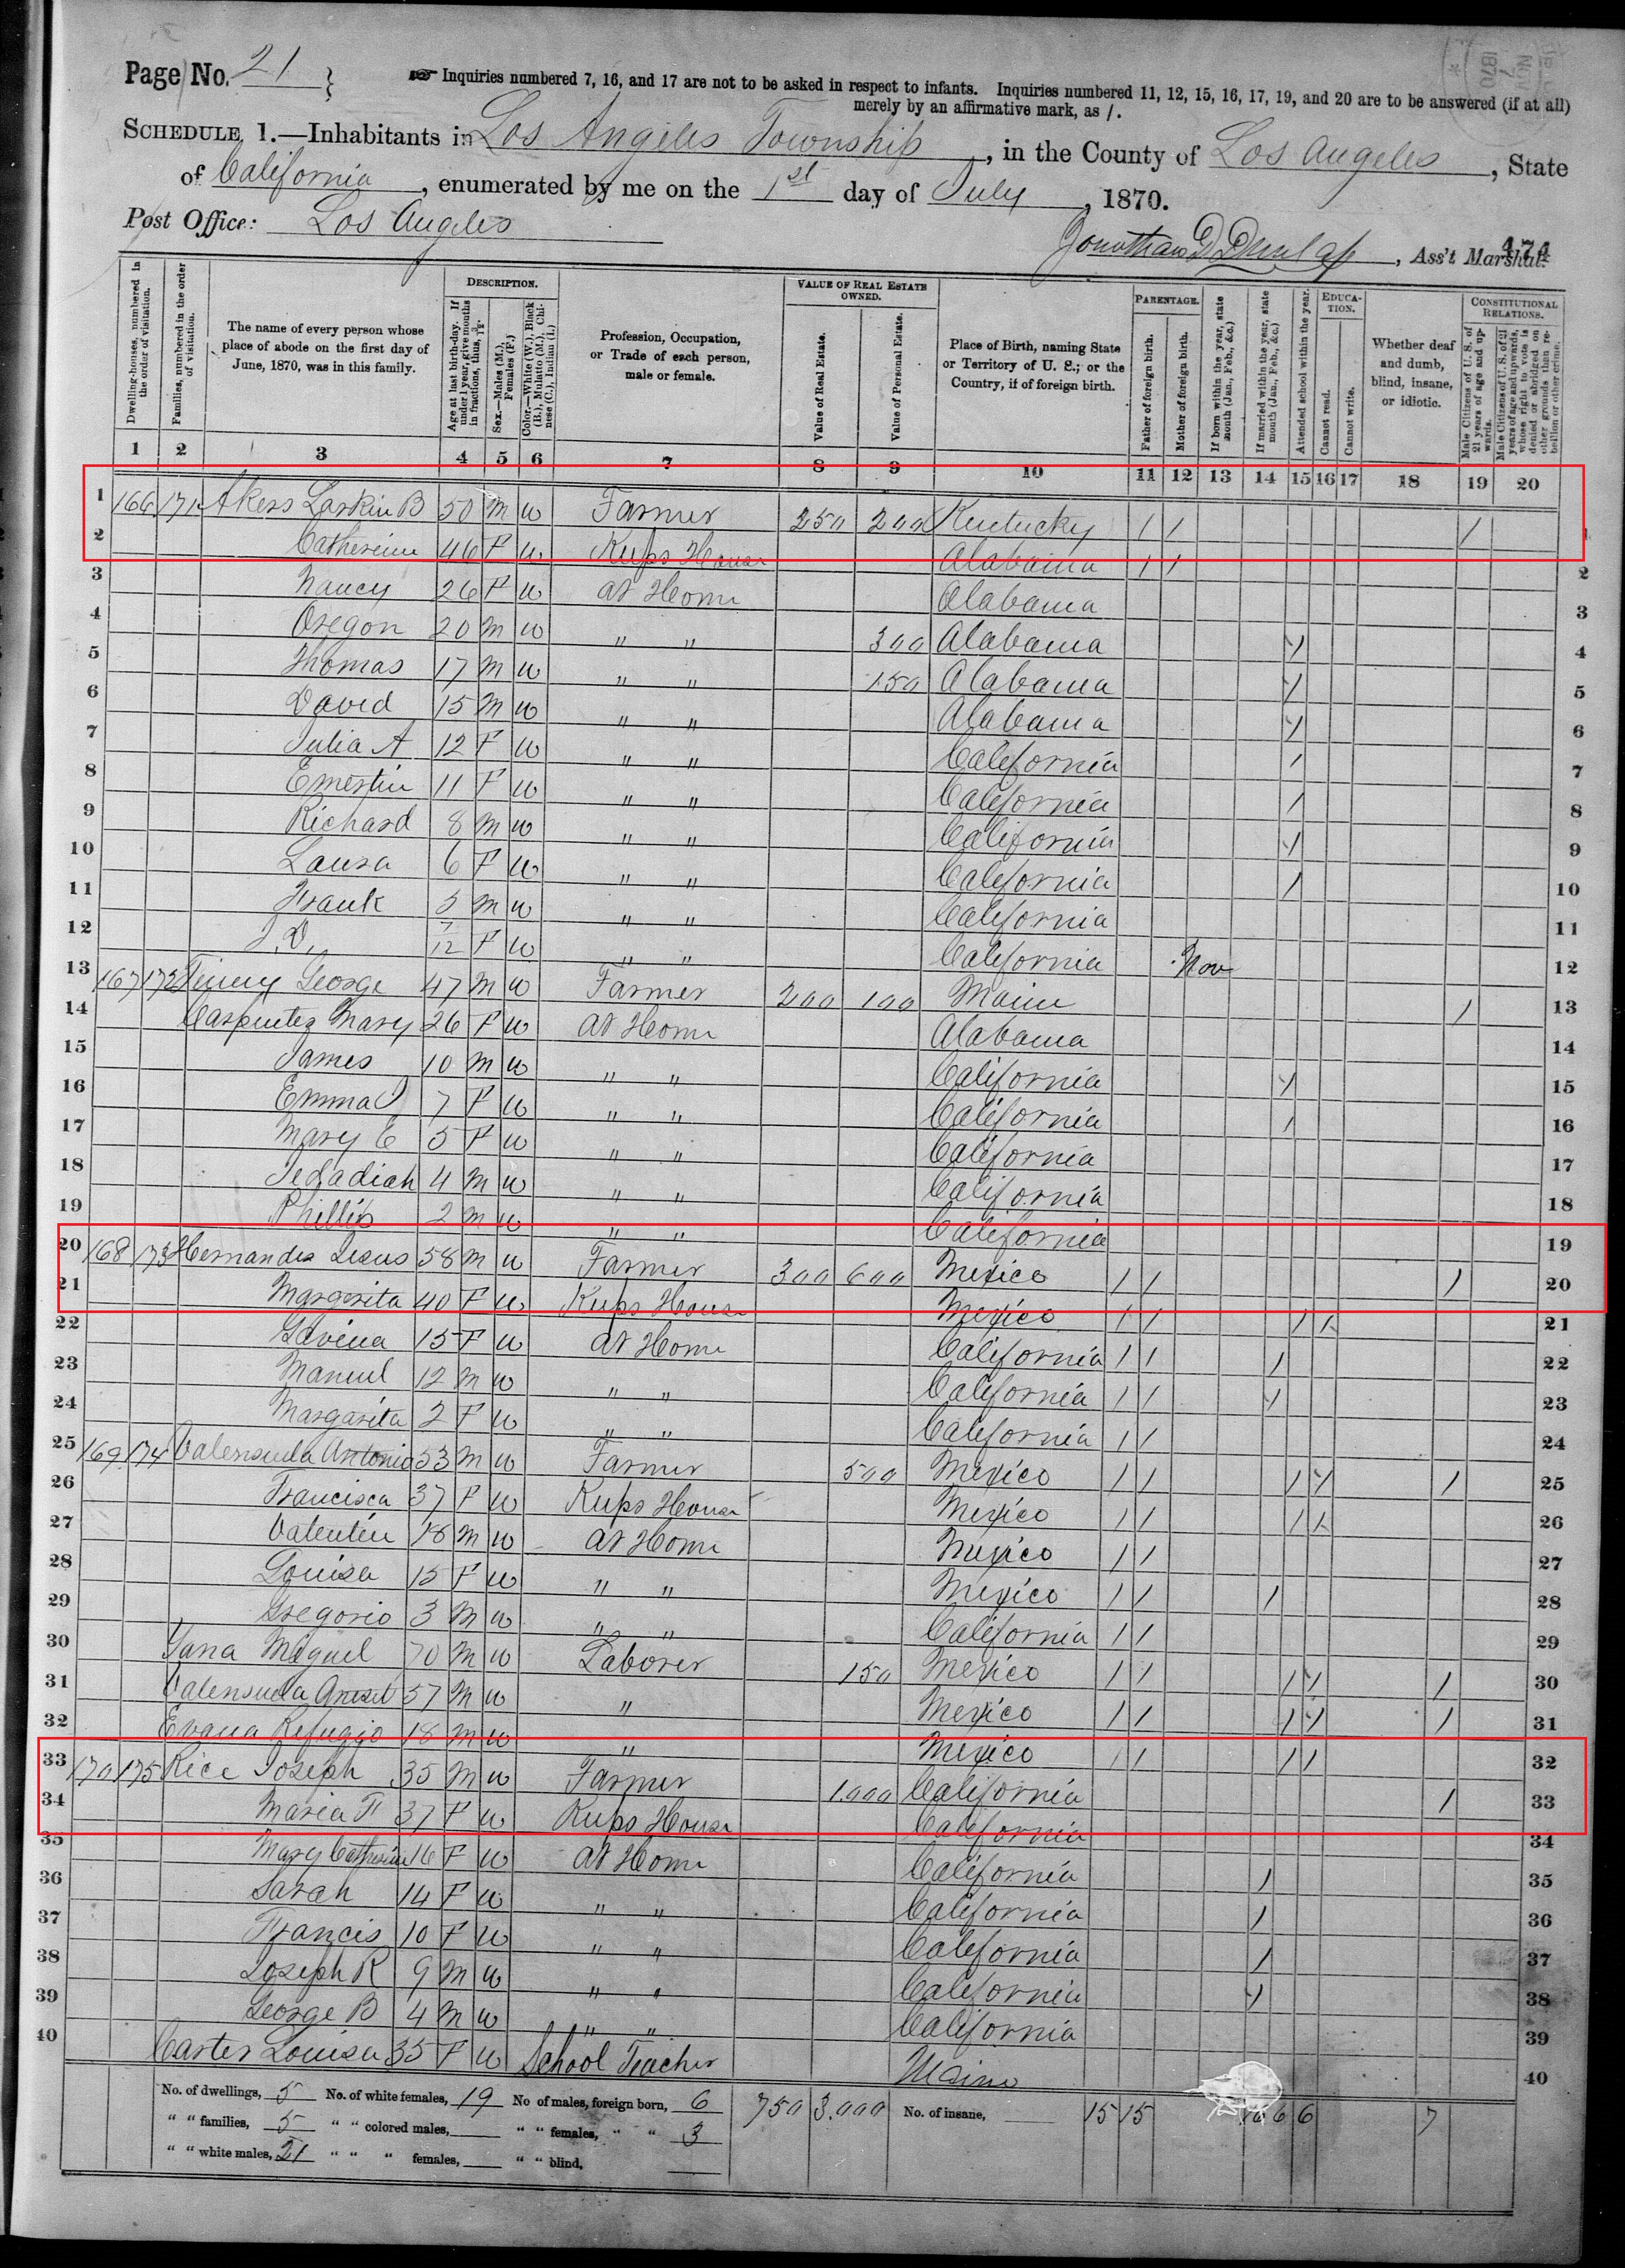 Page No. 21
Inquiries numbered 7, 16, and 17 are not to be asked in respect to infants. Inquiries numbered 11, 12, 15, 16, 17, 19, and 20 are to be answered (if at all)
merely by an affirmative mark, as /.
SCHEDULE 1.—Inhabitants in Los Angeles Township, in the County of Los Angeles, State
of California, enumerated by me on the 1st day of July, 1870.
Post Office: Los Angeles
Jonothan D Dunlap, Ass't Marshal.
474
Dwelling-houses, numbered in the order of visitation.
Families, numbered in the order of visitation.
The name of every person whose place of abode on the first day of June, 1870, was in this family.
DESCRIPTION.
Age at last birth-day. If under 1 year, give months in fractions, thus, 3/12.
Sex.—Males (M.), Females (F.)
Color.—White (W.), Black (B.), Mulatto (M.), Chinese (C.), Indian (I.)
Profession, Occupation, or Trade of each person, male or female.
VALUE OF REAL ESTATE OWNED.
Value of Real Estate.
Value of Personal Estate.
Place of Birth, naming State or Territory of U. S.; or the Country, if of foreign birth.
PARENTAGE.
Father of foreign birth.
Mother of foreign birth.
If born within the year, state month (Jan., Feb., &c.)
If married within the year, state month (Jan., Feb., &c.)
Attended school within the year.
EDUCATION.
Cannot read.
Cannot write.
Whether deaf and dumb, blind, insane, or idiotic.
CONSTITUTIONAL RELATIONS.
Male Citizens of U. S. of 21 years of age and upwards.
Male Citizens of U. S. of 21 years of age and upwards, whose right to vote is denied or abridged on other grounds than rebellion or other crime.
1 2 3 4 5 6 7 8 9 10 11 12 13 14 15 16 17 18 19 20
1 166 171 Akers Larkin B 50 M W Farmer 250 200 Kentucky / / / 1
2 Catherine 46 F W Keeps House Alabama / / 2
3 Nancy 26 F W At Home Alabama 3
4 Oregon 20 M W " " 300 Alabama / 4
5 Thomas 17 M W " " 150 Alabama / 5
6 David 15 M W " " Alabama / 6
7 Julia A 12 F W " " California / 7
8 Ernestin 11 F W " " California / 8
9 Richard 8 M W " " California / 9
10 Laura 6 F W " " California / 10
11 Frank 3 M W " " California 11
12 J. D. 7/12 F W " " California Nov 12
13 167 172 George 47 M W Farmer 200 100 Maine / 13
14 Carpenter Mary 26 F W At Home Alabama 14
15 James 10 M W " " California / 15
16 Emma 7 F W " " California / 16
17 Mary E 5 F W " " California 17
18 Jedadiah 4 M W " " California 18
19 Phillip 2 M W " " California 19
20 168 173 Hernandez Jesus 58 M W Farmer 300 600 Mexico / / / 20
21 Margarita 40 F W Keeps House Mexico / / / / 21
22 Lavina 15 F W At Home California / / / 22
23 Manuel 12 M W " " California / / / 23
24 Margarita 2 F W " " California / / 24
25 169 174 Valensuela Antonio 53 M W Farmer 500 Mexico / / / / / 25
26 Francisca 37 F W Keeps House Mexico / / / / 26
27 Valentin 18 M W At Home Mexico / / 27
28 Louisa 15 F W " " Mexico / / / 28
29 Gregorio 3 M W " " California / / 29
30 Miguel 70 M W Laborer 150 Mexico / / / / / 30
31 Valensuela 57 M W " Mexico / / / / / 31
32 Refugio 18 M W " Mexico / / / / 32
33 170 175 Rice Joseph 35 M W Farmer 1.000 California / 33
34 Maria F 37 F W Keeps House California 34
35 Mary Catherine 16 F W At Home California / 35
36 Sarah 14 F W " " California / 36
37 Francis 10 F W " " California / 37
38 Joseph R 9 M W " " California / 38
39 George B 4 M W " " California 39
40 Carter Louisa 35 F W School Teacher Maine 40
No. of dwellings, 5 No. of white females, 19 No of males, foreign born, 6 750 3.000 No. of insane, 15 15 16 6 6 7
" " families, 5 " " colored males, " " females, " " 3
" " white males, 21 " " " females, " " blind,